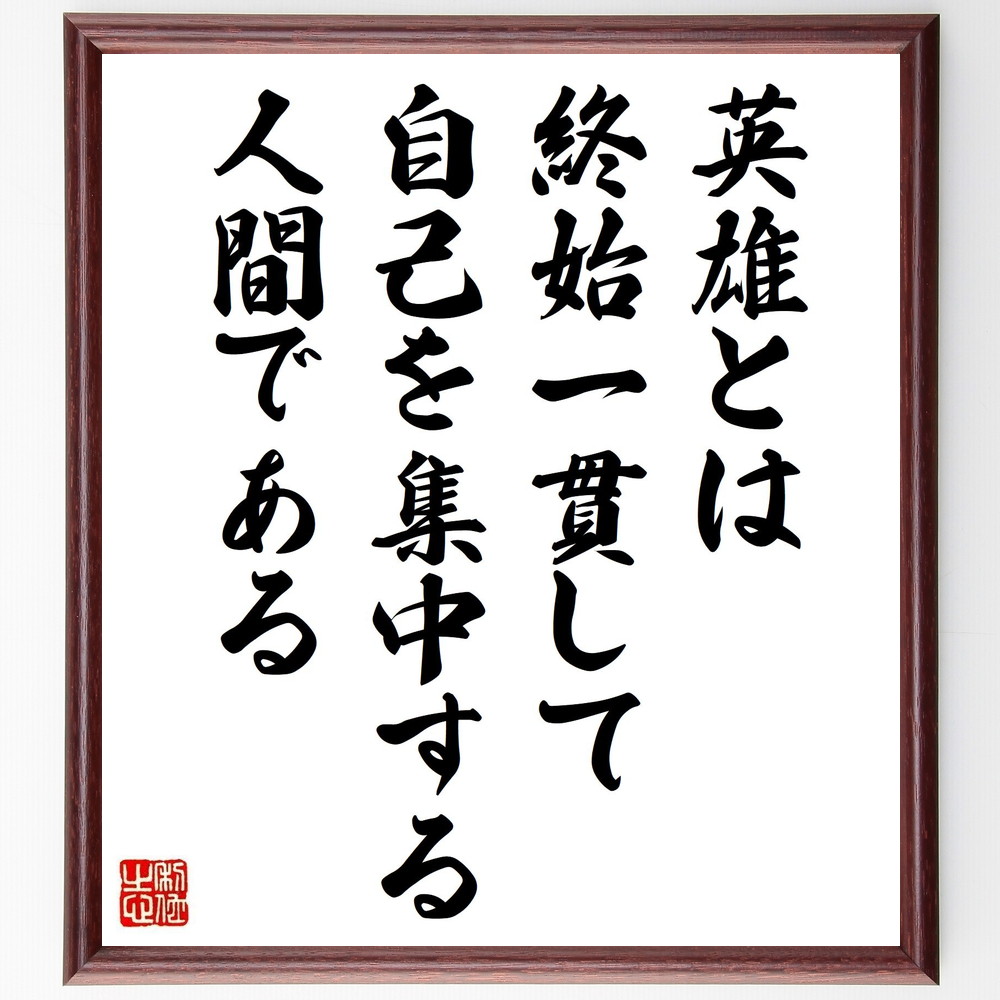 英雄とは
終始一貫して
自己を集中する
人間である